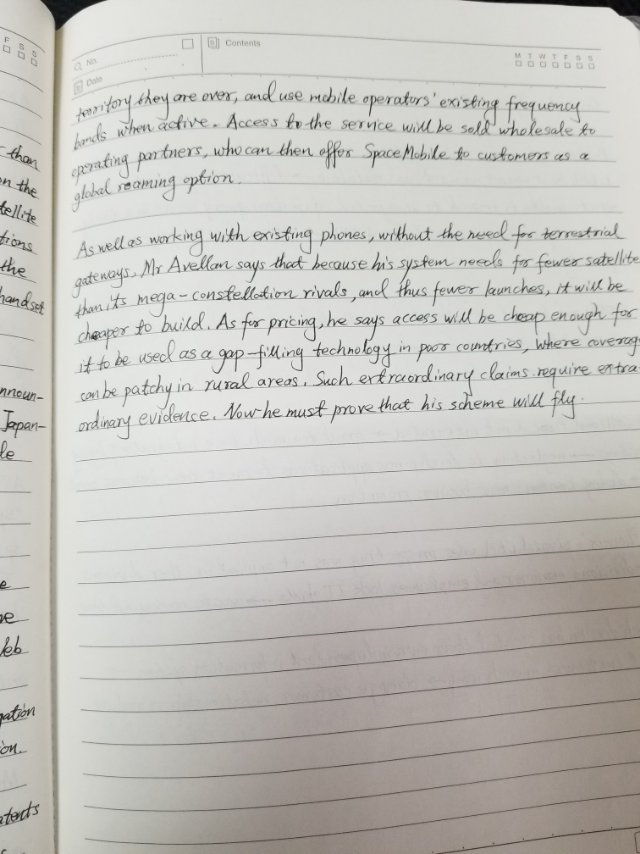 F S S
than
on the
tellite
tions
the
handset
nnoun-
Japan-
le
e
ve
Web
gation
on.
atents
s
No.
Contents
M T W T F S S
Date
territory they are over, and use mobile operators' existing frequency
bands when active. Access to the service will be sold wholesale to
operating partners, who can then offer SpaceMobile to customers as a
global roaming option.
As well as working with existing phones, without the need for terrestrial
gateways, Mr Avellan says that because his system needs far fewer satellite
than its mega-constellation rivals, and thus fewer launches, it will be
cheaper to build. As for pricing, he says access will be cheap enough for
it to be used as a gap-filling technology in poor countries, where coverag
can be patchy in rural areas. Such extraordinary claims require extra
ordinary evidence. Now he must prove that his scheme will fly.